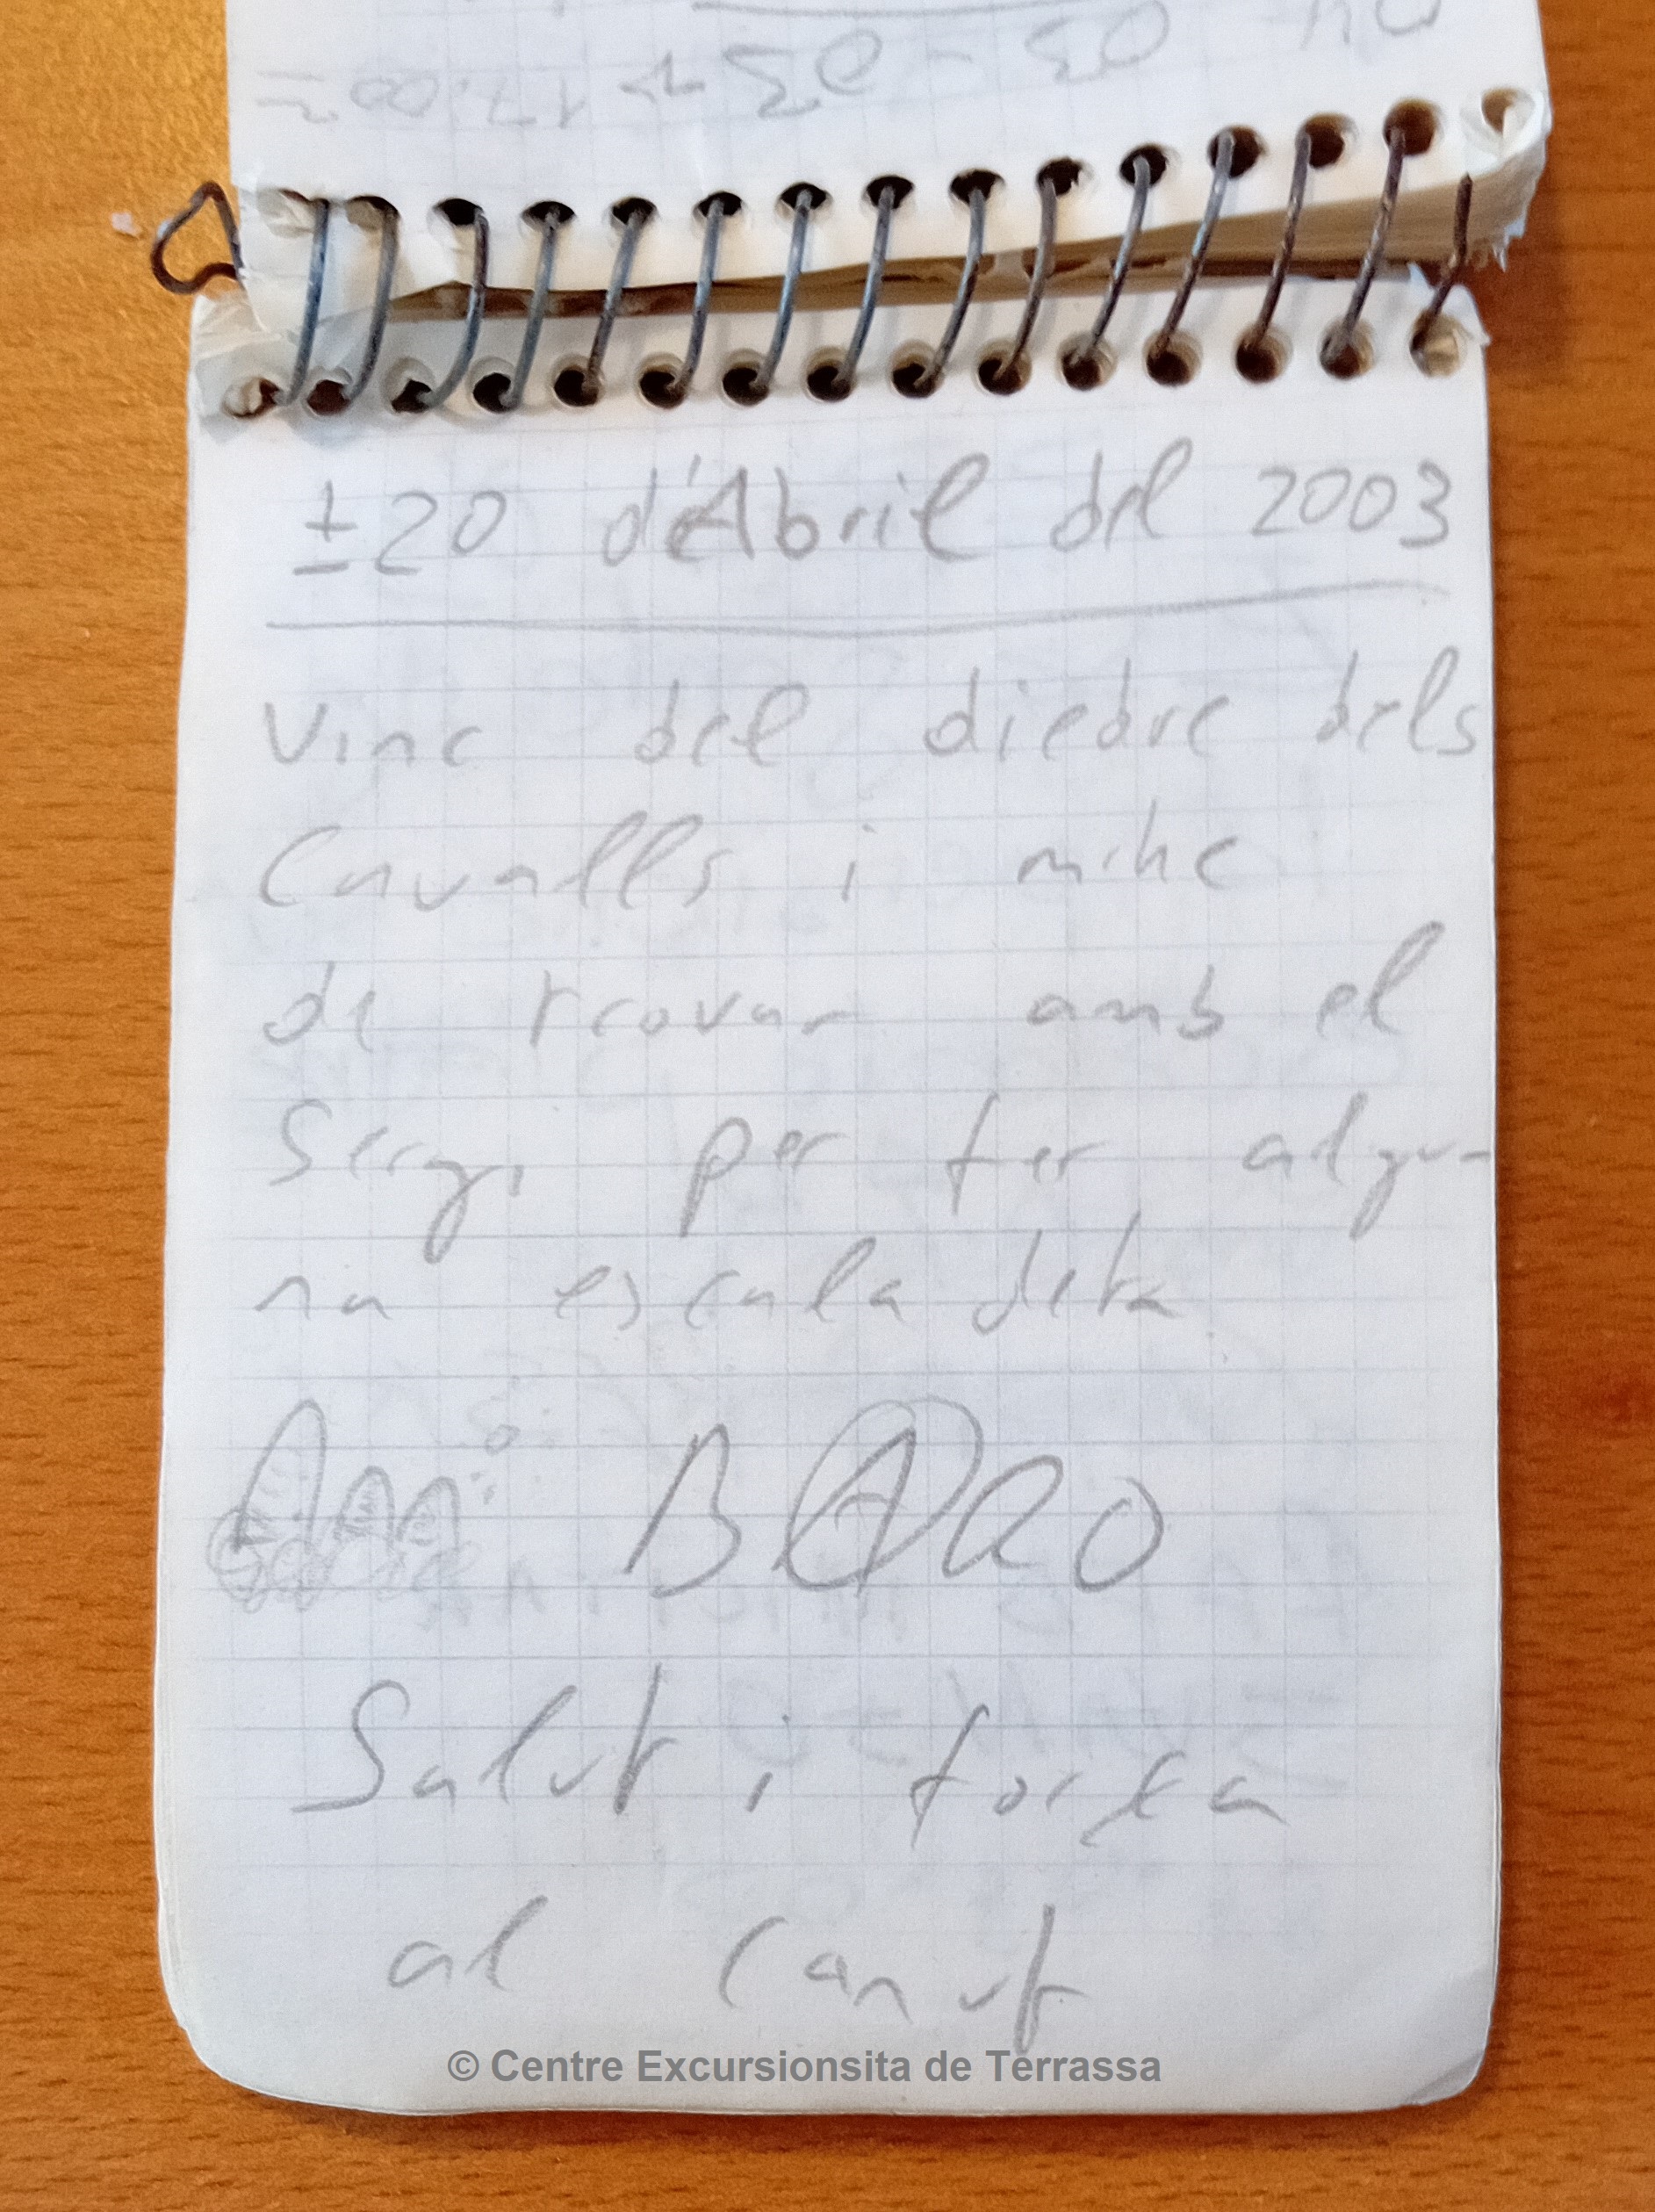 03-03-17:00=
± 20 d'Abril del 2003
Vinc del diedre dels
Cavalls i m'he
de trovar amb el
Sergi per fer algu-
na escaladeta
B@RO
Salut i força
al canut
© Centre Excursionsita de Terrassa